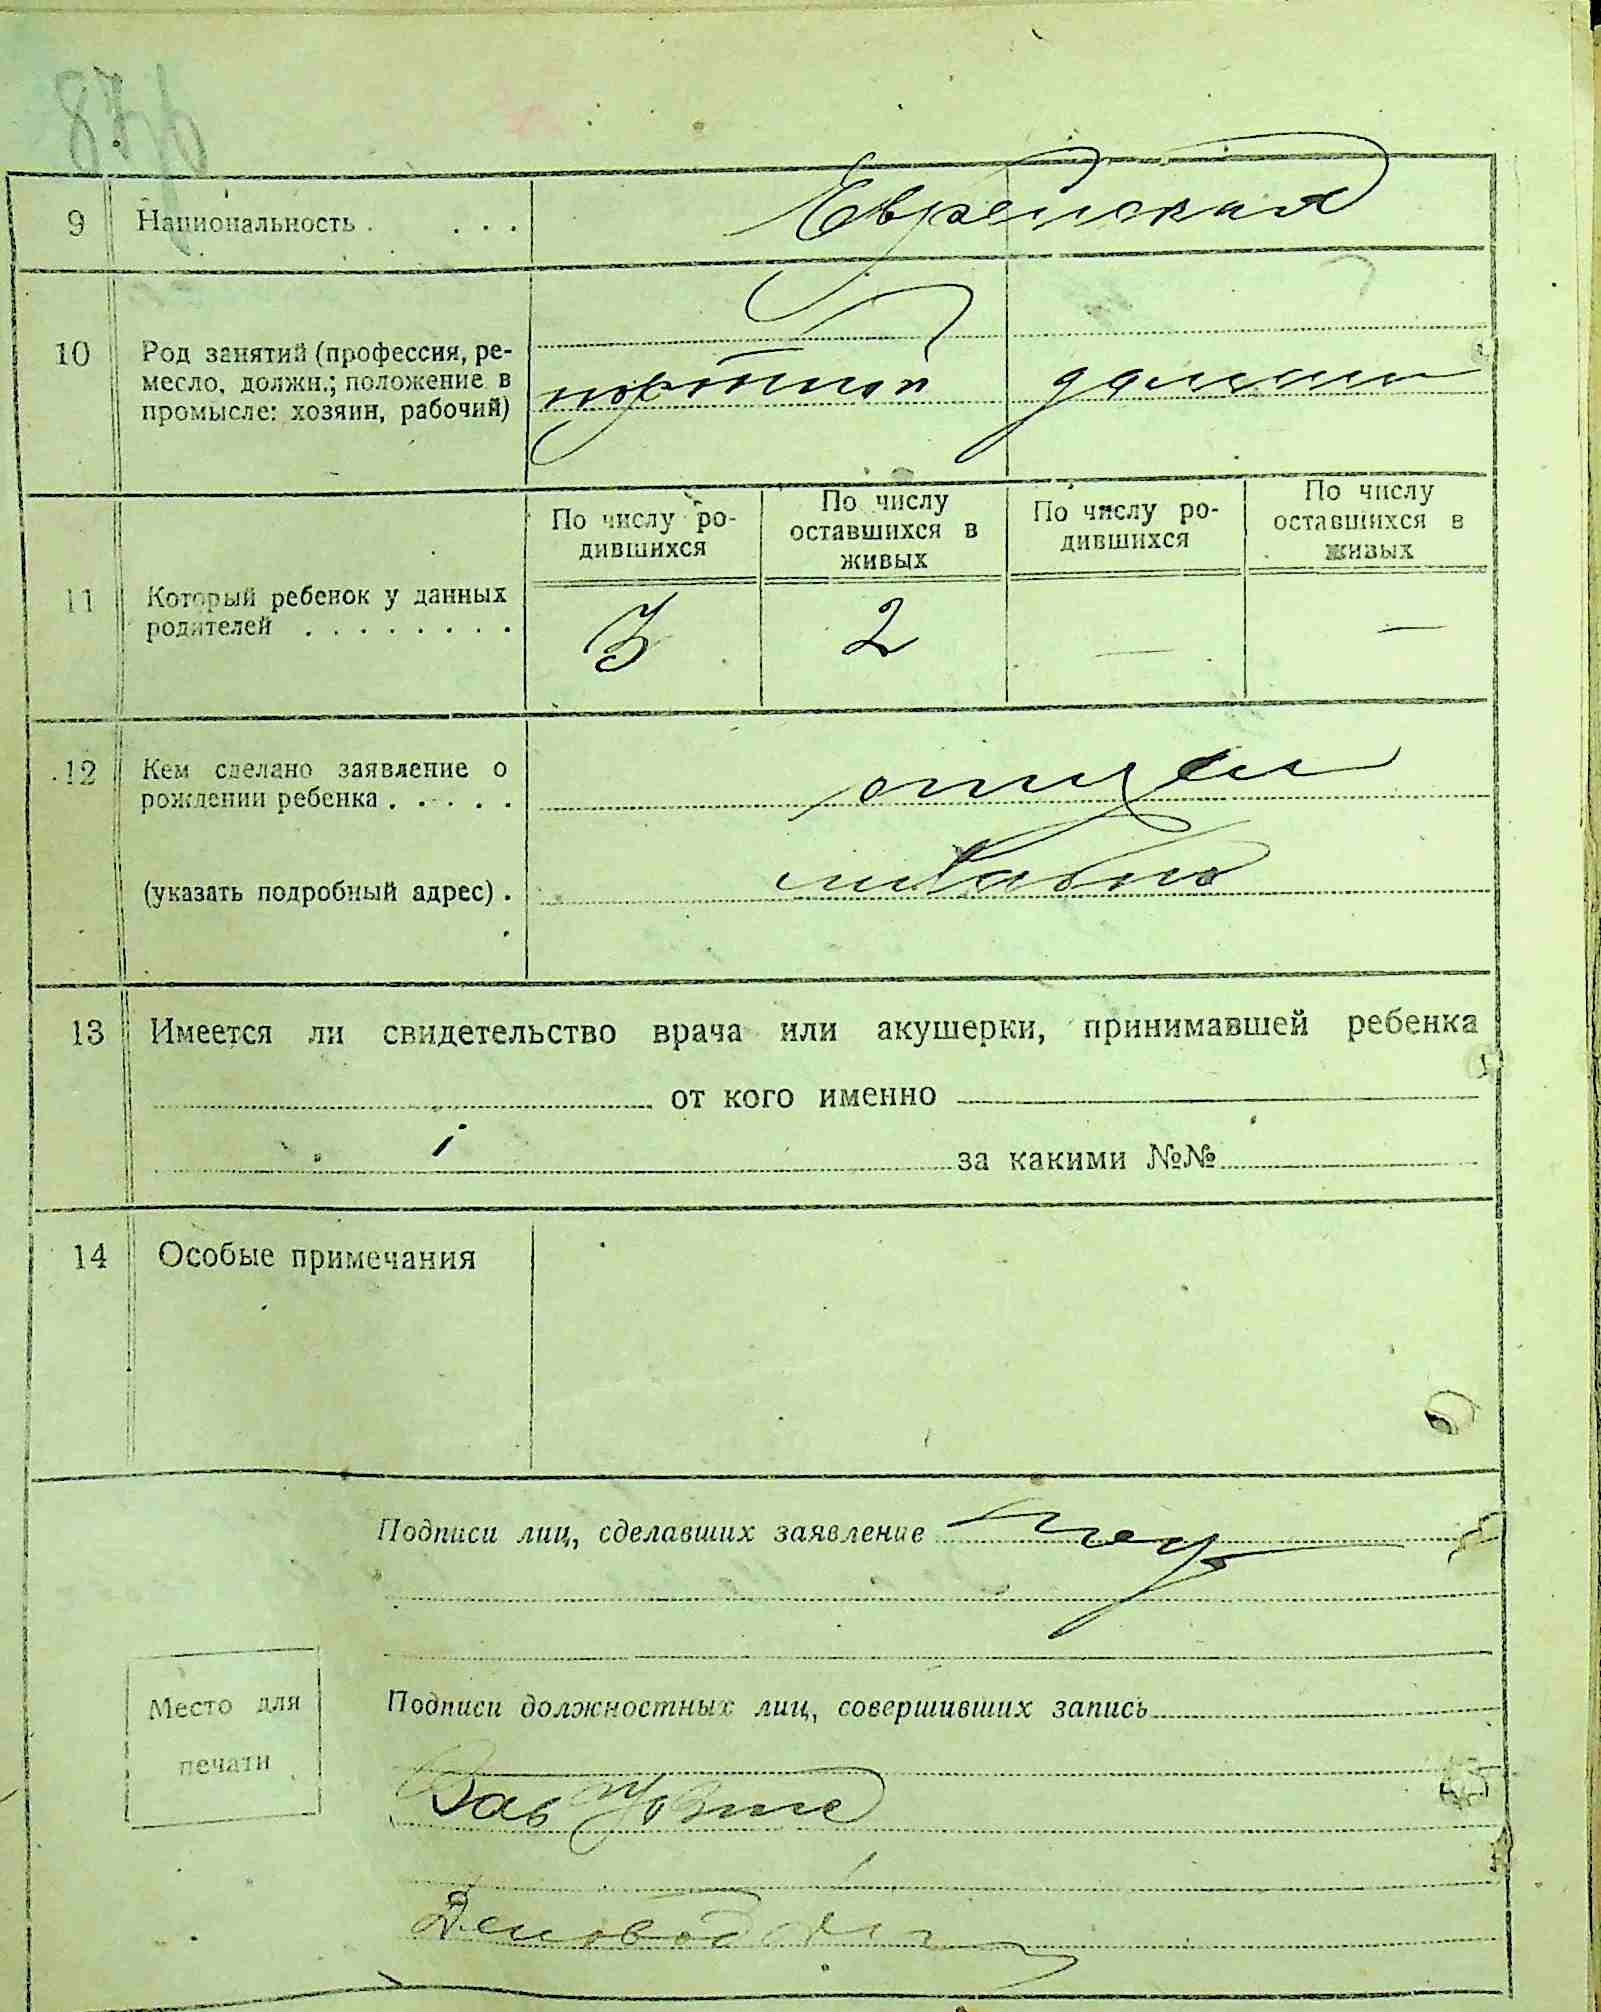 9 Национальность . . . . Еврейская
10 Род занятий (профессия, ре-
месло, должн.; положение в
промысле: хозяин, рабочий)
портной
11 Который ребенок у данных
родителей . . . . . . . .
По числу ро-
дившихся
По числу
оставшихся в
живых
По числу ро-
дившихся
По числу
оставшихся в
живых
3 2 — —
12 Кем сделано заявление о
рождении ребенка . . . . . отцем
(указать подробный адрес) .
13 Имеется ли свидетельство врача или акушерки, принимавшей ребенка
от кого именно
за какими №№
14 Особые примечания
Подписи лиц, сделавших заявление
Место для
печати
Подписи должностных лиц, совершивших запись
Зав
Деловод